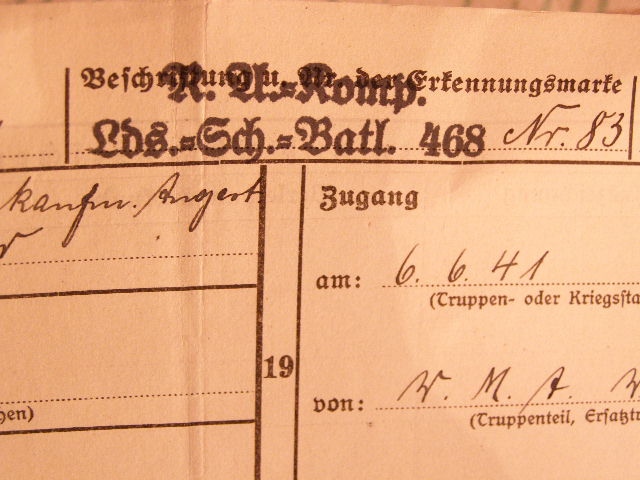 Beschriftung u. Nr. der Erkennungsmarke
K. A.=Komp.
Lds.=Sch.=Batl. 468 Nr. 83
kaufm. Angest.
Zugang
am: 6. 6. 41
(Truppen- oder Kriegssta
19
von: W. M. A. W
(Truppenteil, Ersatztr
hen)